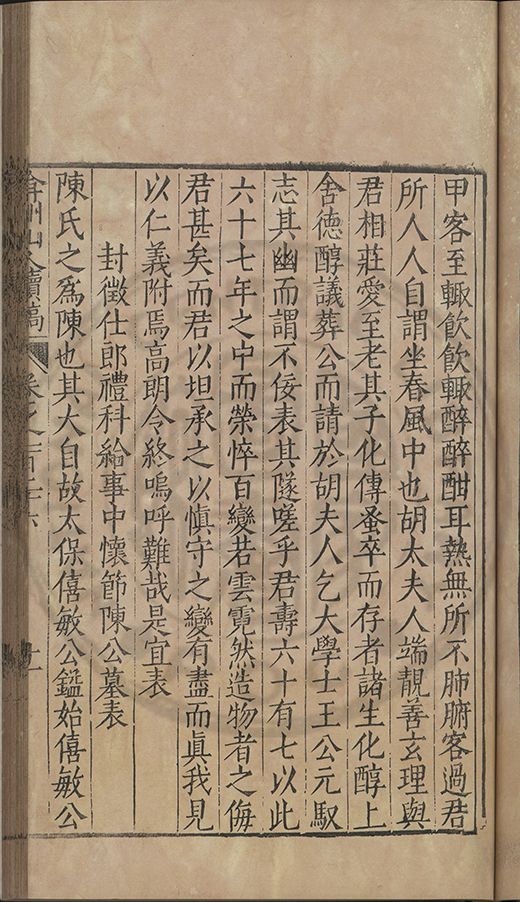 甲客至輙飲飲輙醉醉酣耳熱無所不肺腑客過君
所人人自謂坐春風中也胡太夫人端靚善玄理與
君相莊愛至老其子化傳蚤卒而存者諸生化醇上
舍德醇議葬公而請於胡夫人乞大學士王公元馭
志其幽而謂不佞表其隧嗟乎君壽六十有七以此
六十七年之中而榮悴百變若雲霓然造物者之侮
君甚矣而君以坦承之以慎守之變有盡而眞我見
以仁義附焉高朗令終嗚呼難哉是宜表
封徵仕郎禮科給事中懷節陳公墓表
陳氏之爲陳也其大自故太保僖敏公鎰始僖敏公
弇州山人續稿
卷之一百二十六
十一